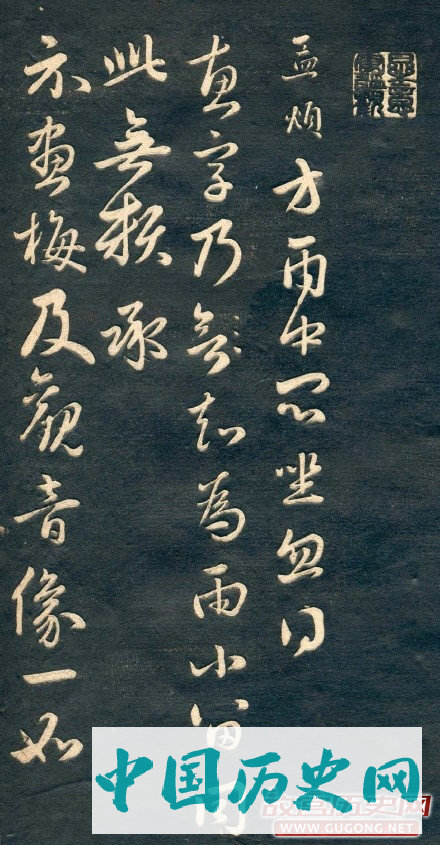 孟頫方雨中坐忽得
惠字乃知為雨小留
此無承
示畫梅及觀音像一如
中国历史网
故宫历史网
WWW.GUGONG.NET